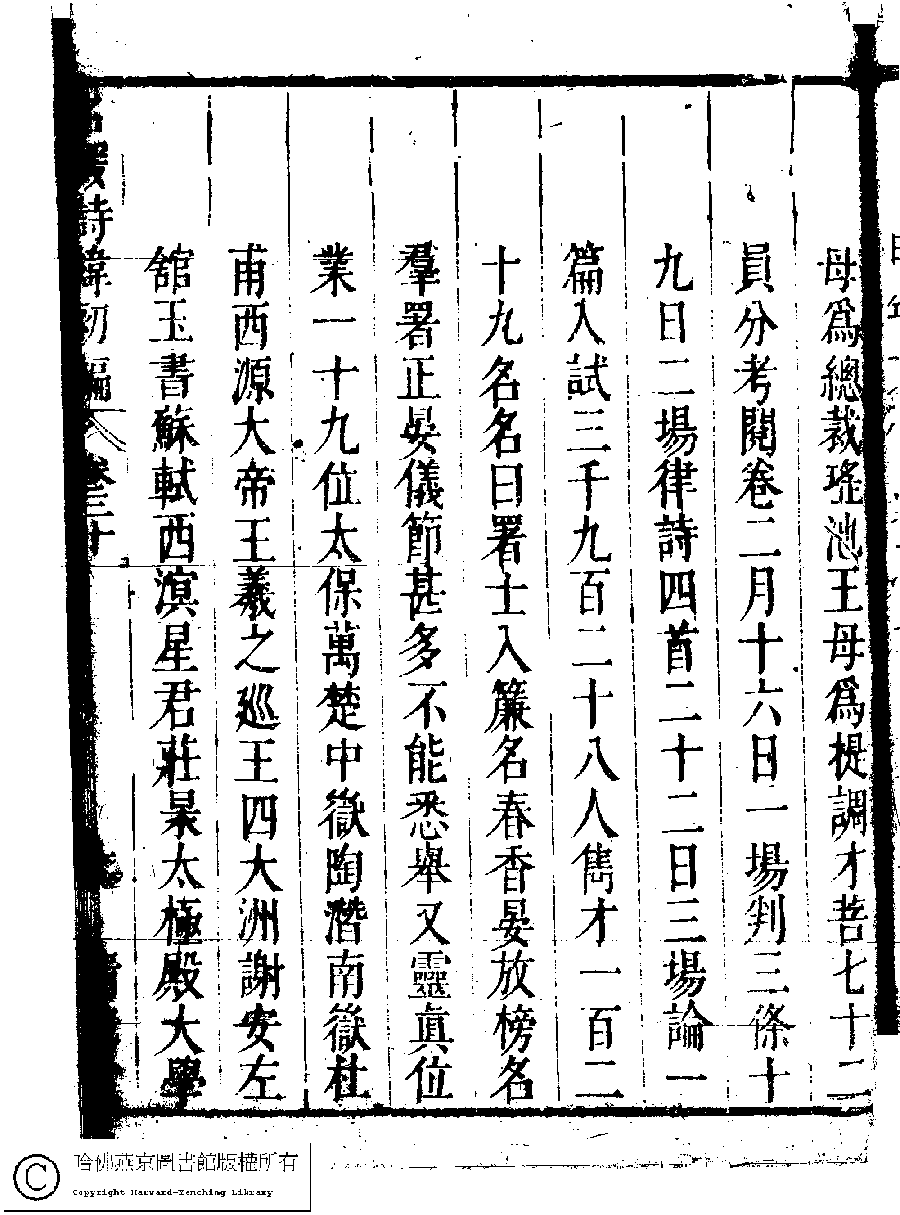 母爲總裁瑤池王母爲提調才菩七十二
員分考閱卷二月十六日一場判三條十
九日二場律詩四首二十二日三場論一
篇入試三千九百二十八人雋才一百二
十九名名曰署士入簾名春香晏放榜名
羣署正晏儀節甚多不能悉舉又靈眞位
業一十九位太保萬楚中嶽陶潛南嶽杜
甫西源大帝王羲之巡王四大洲謝安左
館玉書蘇軾西溟星君莊杲太極殿大學
詩緯初編 卷三十
Ⓒ 哈佛燕京圖書館版權所有
Copyright Harvard-Yenching Library